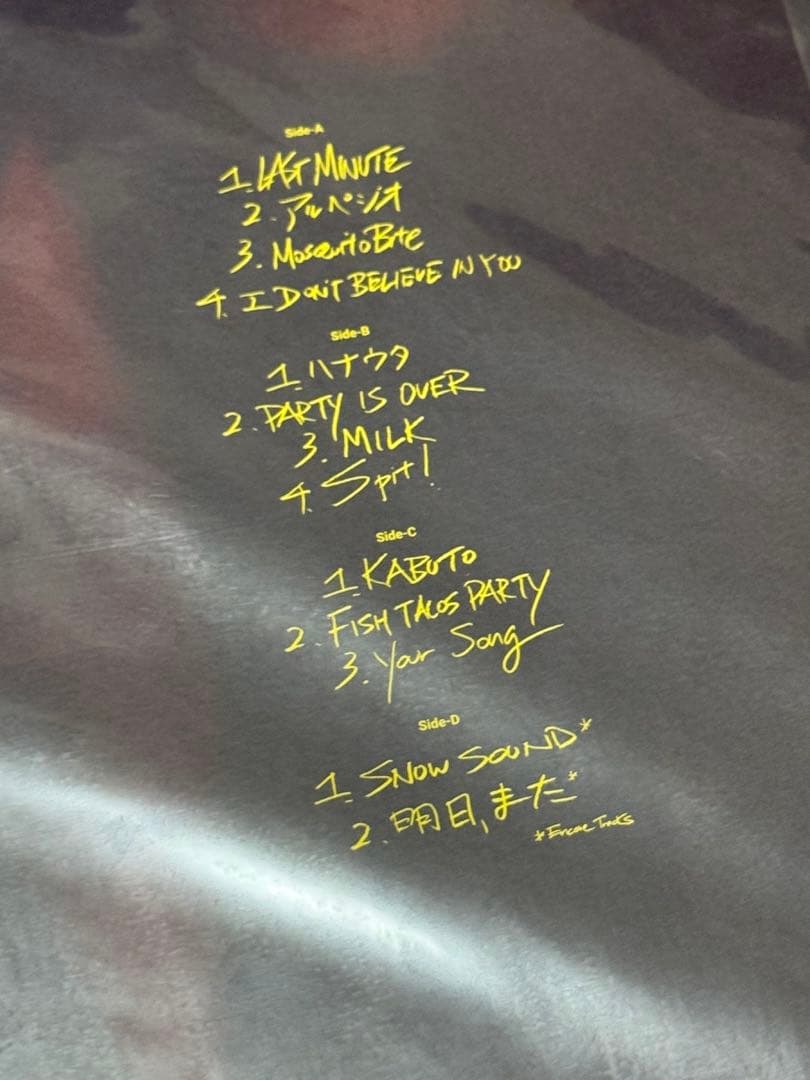 Side-A
1. LAST MINUTE
2. アルペジオ
3. Mosquito Bite
4. I DON'T BELIEVE IN YOU
Side-B
1. ハナウタ
2. PARTY IS OVER
3. MILK
4. Spit!
Side-C
1. KABUTO
2. FISH TACOS PARTY
3. Your Song
Side-D
1. SNOW SOUND*
2. 明日、また*
*Encore Tracks